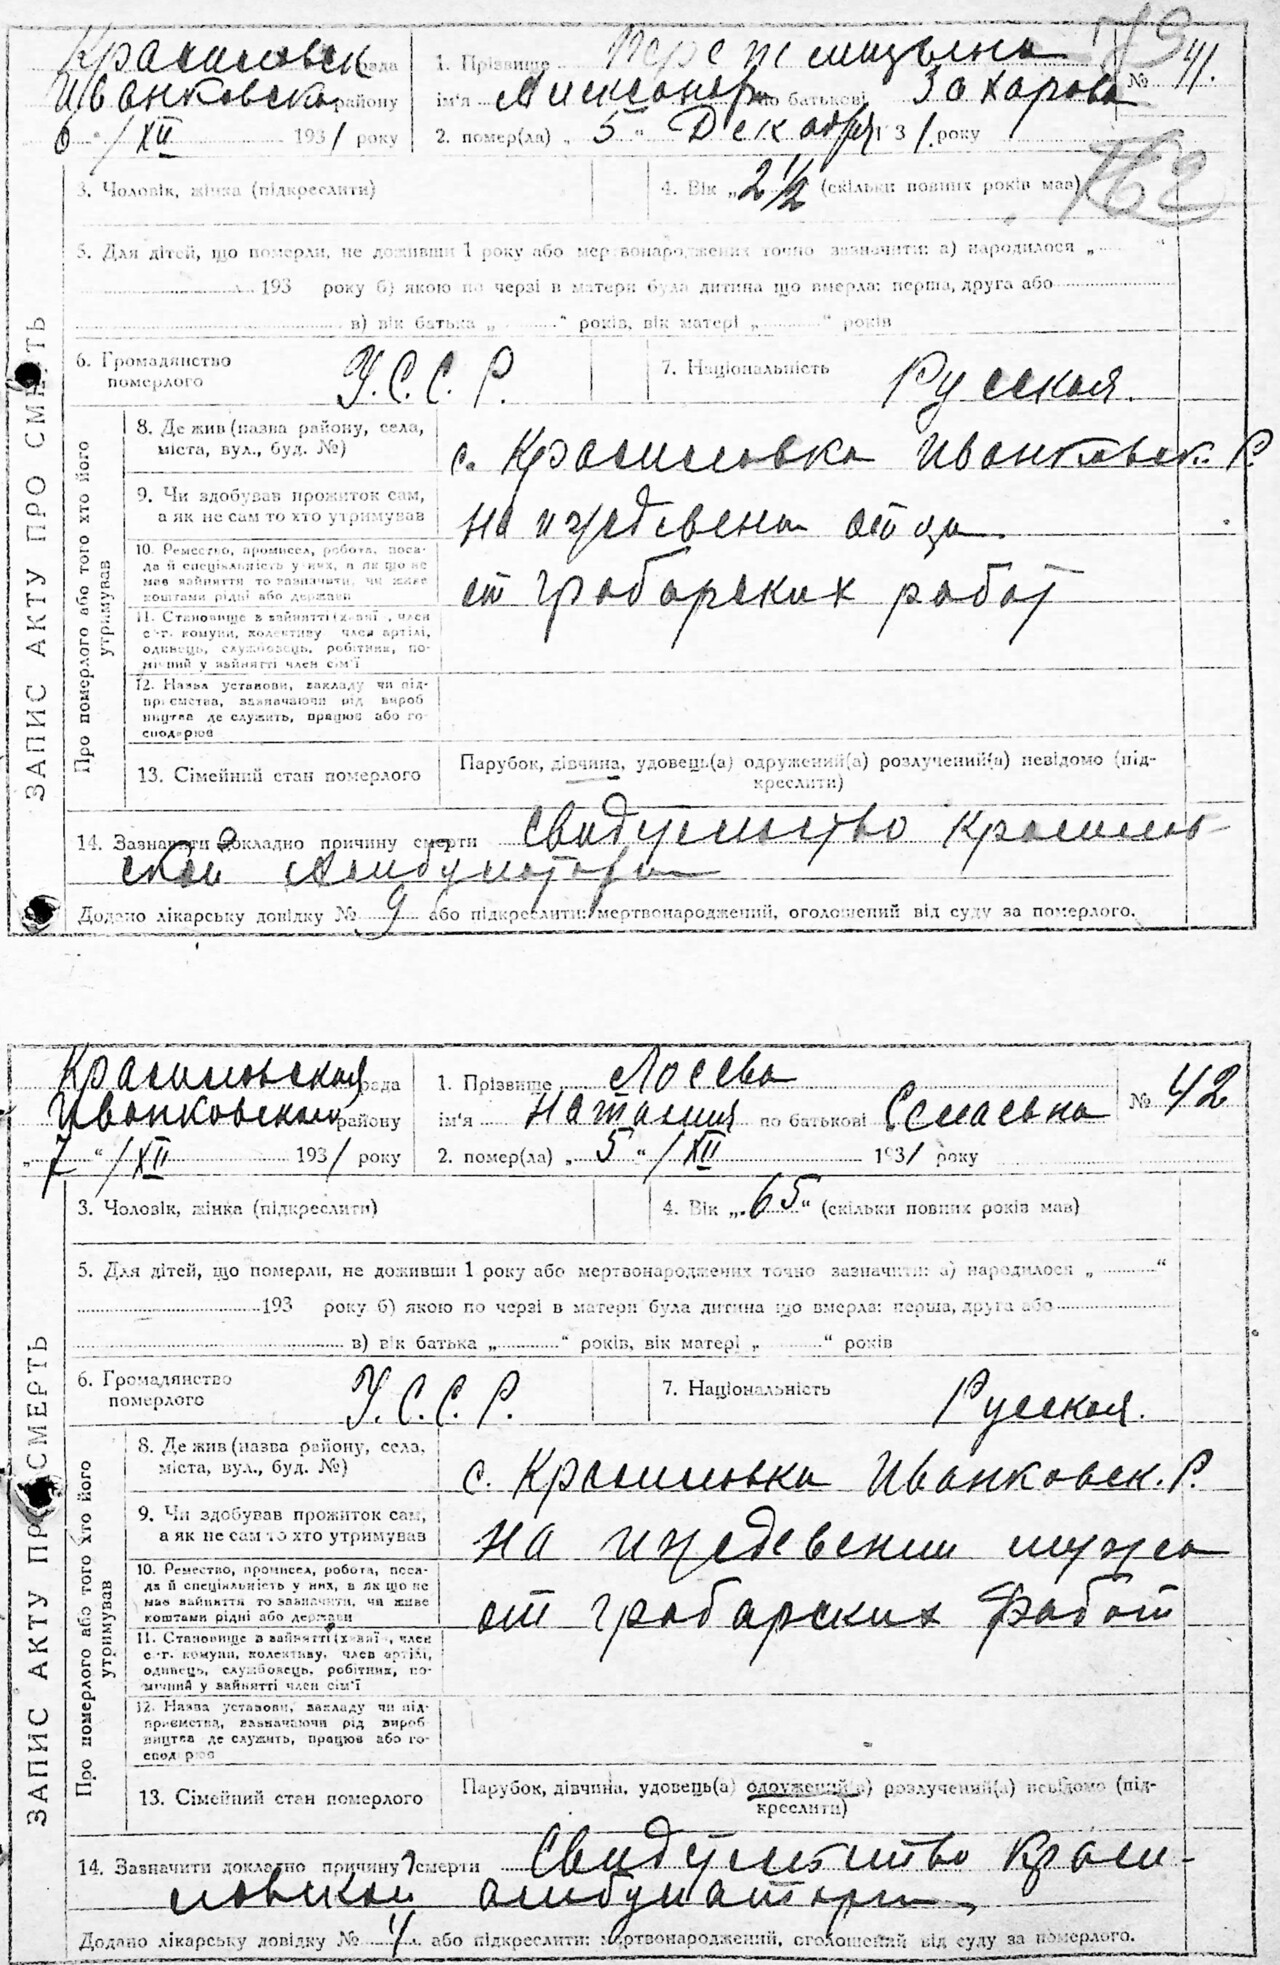 Красиловск рада
Иванковского району
6 " / XII 1931 року
1. Прізвище
ім'я Александра по батькові Захарова
2. помер(ла) „ 5 " Декабря 1931 року
№ 41.
3. Чоловік, жінка (підкреслити)
4. Вік „ 2 1/2 (скільки повних років мав)
162
5. Для дітей, що померли, не доживши 1 року або мертвонароджених точно зазначити: а) народилося „ "
193 року б) якою по черзі в матери була дитина що вмерла: перша, друга або
в) вік батька „ " років, вік матері „ " років
6. Громадянство
померлого
У.С.С.Р.
7. Національність
Русская.
ЗАПИС АКТУ ПРО СМЕРТЬ
Про померлого або того хто його
утримував
8. Де жив (назва району, села,
міста, вул., буд. №)
с. Красиловка Иванковск. Р.
9. Чи здобував прожиток сам,
а як не сам то хто утримував
на иждевени отца
10. Ремество, промисел, робота, поса-
да й спеціяльність у них, а як що не
мав зайняття то зазначити, чи живе
коштами рідні або держави
от грабарских работ
11. Становище в зайнятті (хазяї, член
с-г. комуни, колективу член артілі,
одинець, службовець, робітник, по-
мічний у зайнятті член сім'ї
12. Назва установи, закладу чи під-
приємства, зазначаючи рід вироб
ництва де служить, працює або го-
сподарює
13. Сімейний стан померлого
Парубок, дівчина, удовець(а) одружений(а) розлучений(а) невідомо (під-
креслити)
14. Зазначити докладно причину смерти Свидутельство Красилов-
ской Амбулатори
Додано лікарську довідку № 9 або підкреслити: мертвонароджений, оголошений від суду за померлого.
Красиловская рада
Иванковский району
„ 7 " / XII 1931 року
1. Прізвище Лосева
ім'я Наталия по батькові
2. помер(ла) „ 5 " / XII 1931 року
№ 42
3. Чоловік, жінка (підкреслити)
4. Вік „ 65 " (скільки повних років мав)
5. Для дітей, що померли, не доживши 1 року або мертвонароджених точно зазначити: а) народилося „ "
193 року б) якою по черзі в матери була дитина що вмерла: перша, друга або
в) вік батька „ " років, вік матері „ " років
6. Громадянство
померлого
У.С.С.Р.
7. Національність
Русская.
ЗАПИС АКТУ ПРО СМЕРТЬ
Про померлого або того хто його
утримував
8. Де жив (назва району, села,
міста, вул., буд. №)
с. Красиловка Иванковск. Р.
9. Чи здобував прожиток сам,
а як не сам то хто утримував
на иждевении мужа
10. Ремество, промисел, робота, поса-
да й спеціяльність у них, а як що не
мав зайняття то зазначити, чи живе
коштами рідні або держави
от грабарских работ
11. Становище в зайнятті (хазяї, член
с-г. комуни, колективу, член артілі,
одинець, службовець, робітник, по-
мічний у зайнятті член сім'ї
12. Назва установи, закладу чи під-
приємства, зазначаючи рід вироб
ництва де служить, працює або го-
сподарює
13. Сімейний стан померлого
Парубок, дівчина, удовець(а) одружений(а) розлучений(а) невідомо (під-
креслити)
14. Зазначити докладно причину смерти Свидутельство Краси-
ловской амбулатори
Додано лікарську довідку № 4 або підкреслити: мертвонароджений, оголошений від суду за померлого.